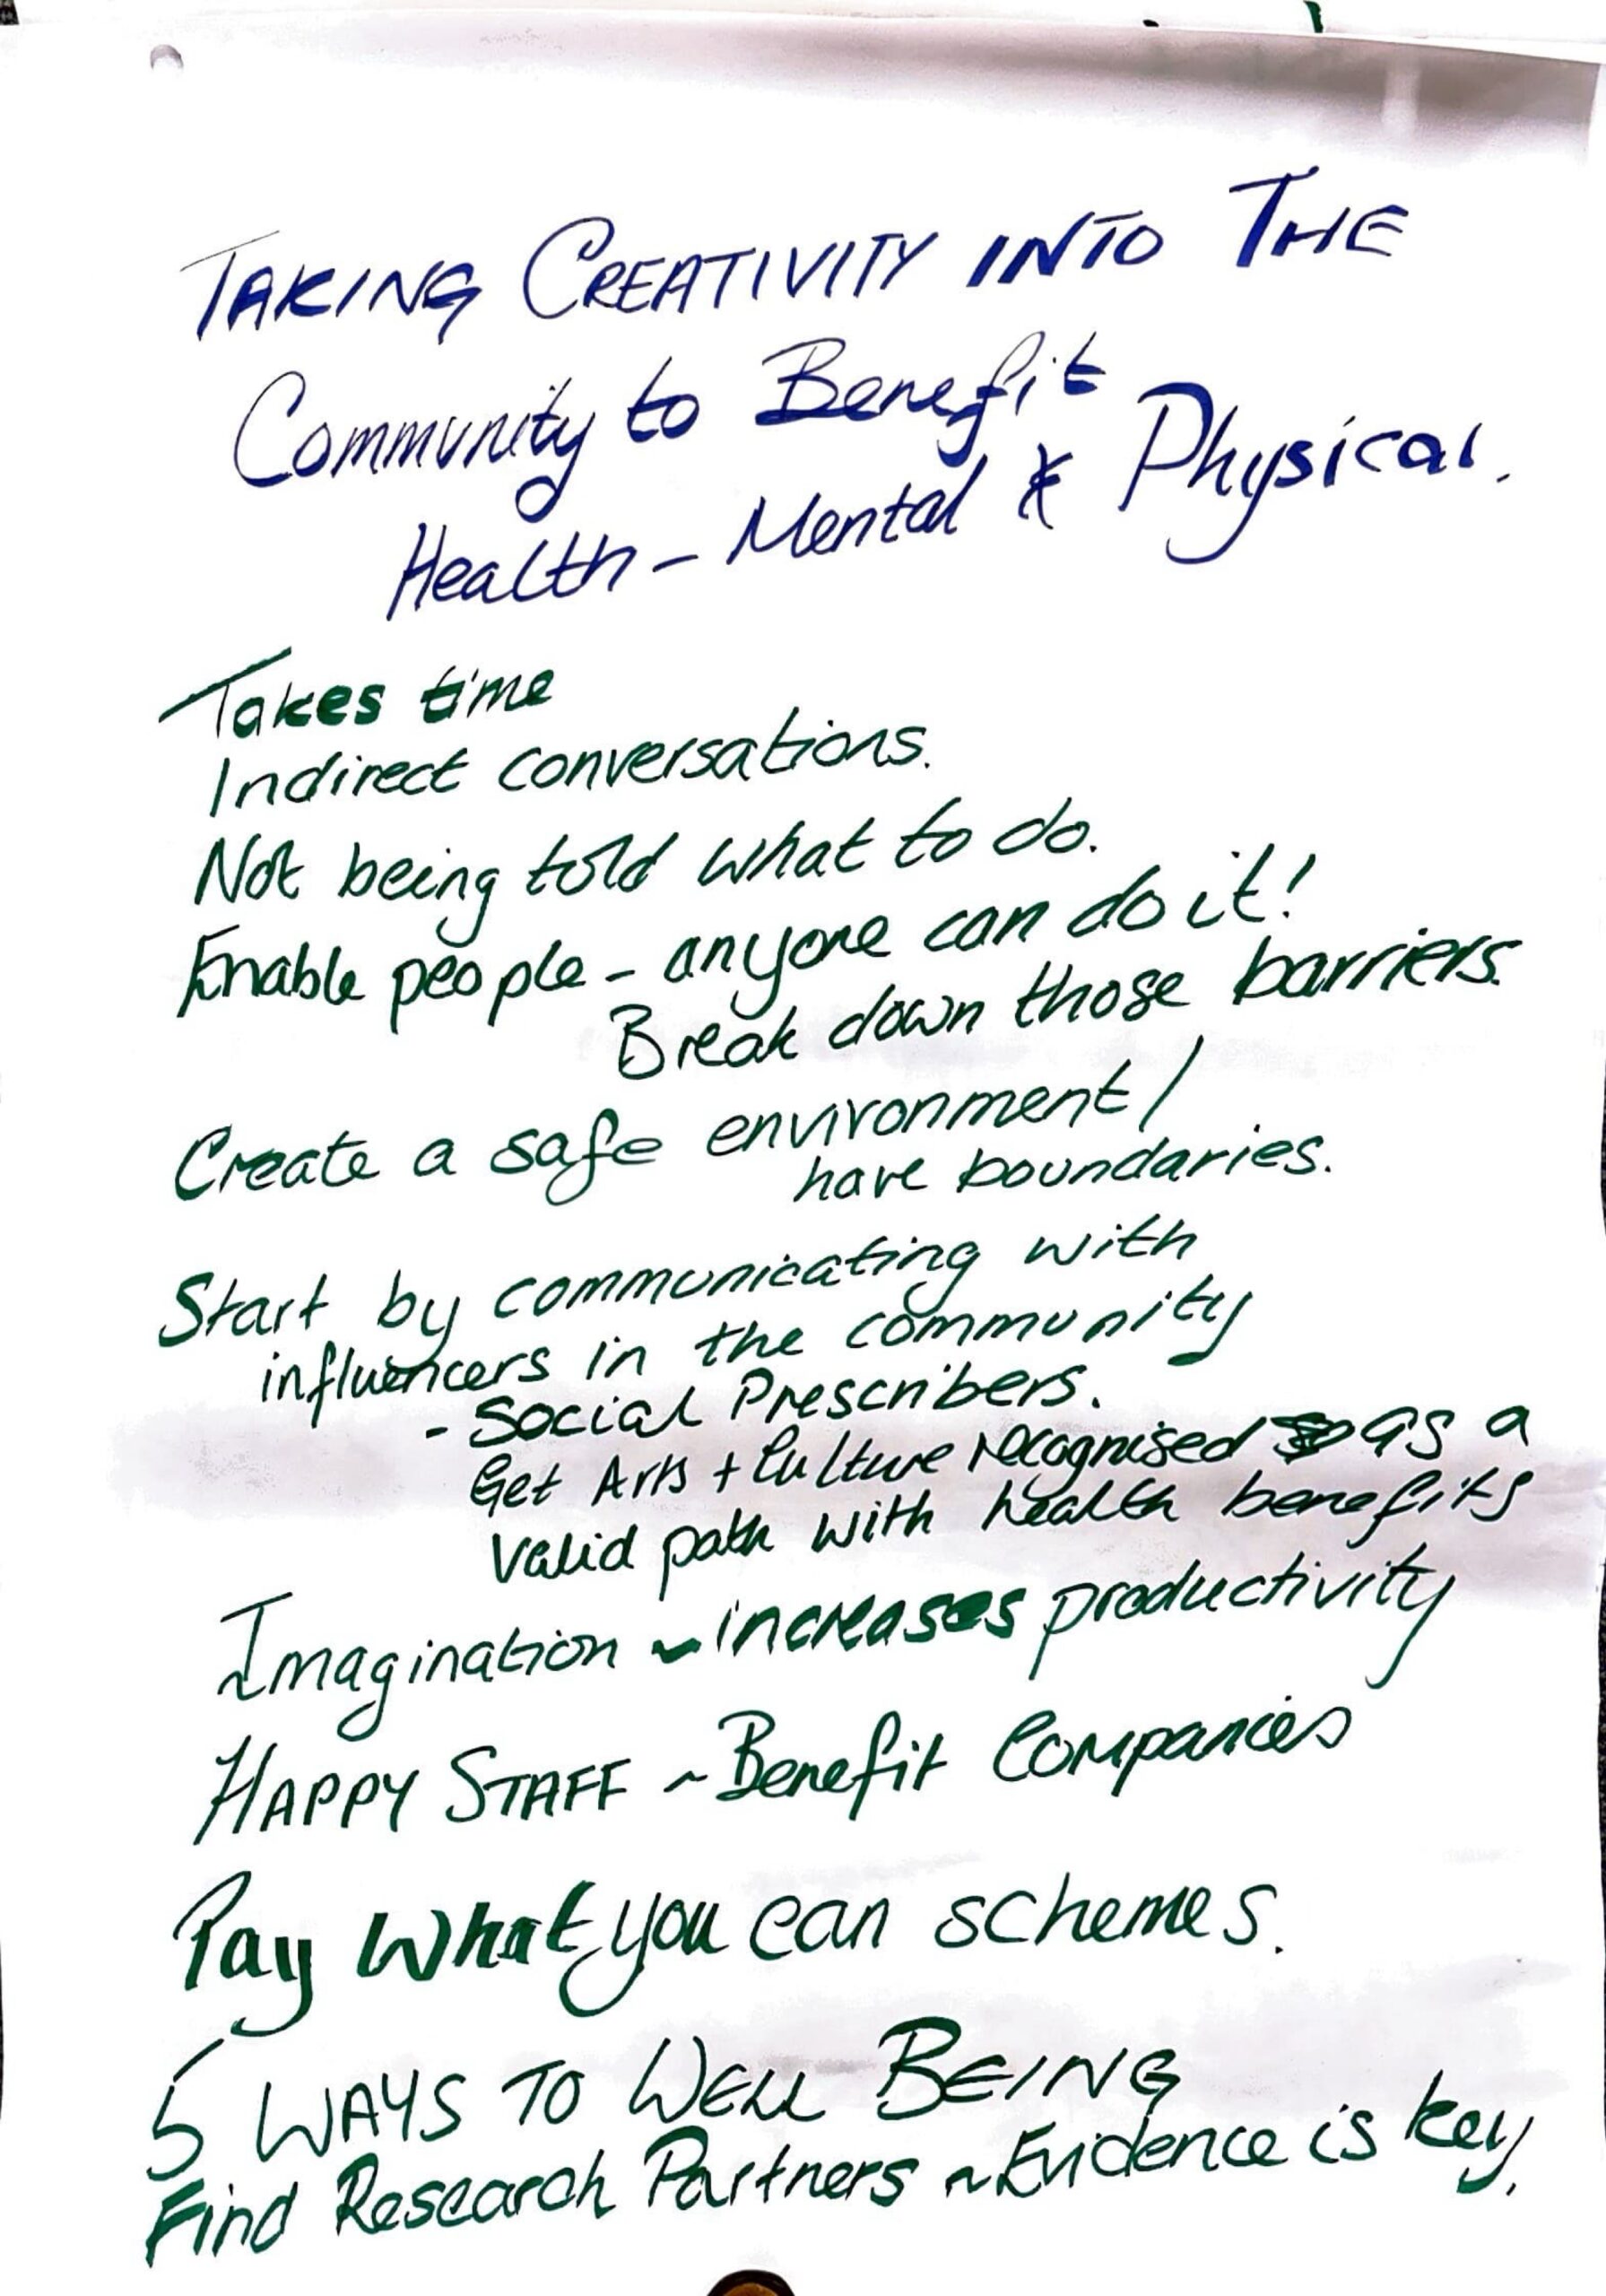 TAKING CREATIVITY INTO THE
Community to Benefit
Health - Mental & Physical.
Takes time
Indirect conversations.
Not being told what to do.
Enable people - anyone can do it!
Break down those barriers.
Create a safe environment /
have boundaries.
Start by communicating with
influencers in the community
- Social Prescribers.
Get Arts + Culture recognised as a
valid path with health benefits
Imagination ~ increases productivity
HAPPY STAFF ~ Benefit Companies
Pay What you can schemes.
5 WAYS TO WELL BEING
Find Research Partners ~ Evidence is key.